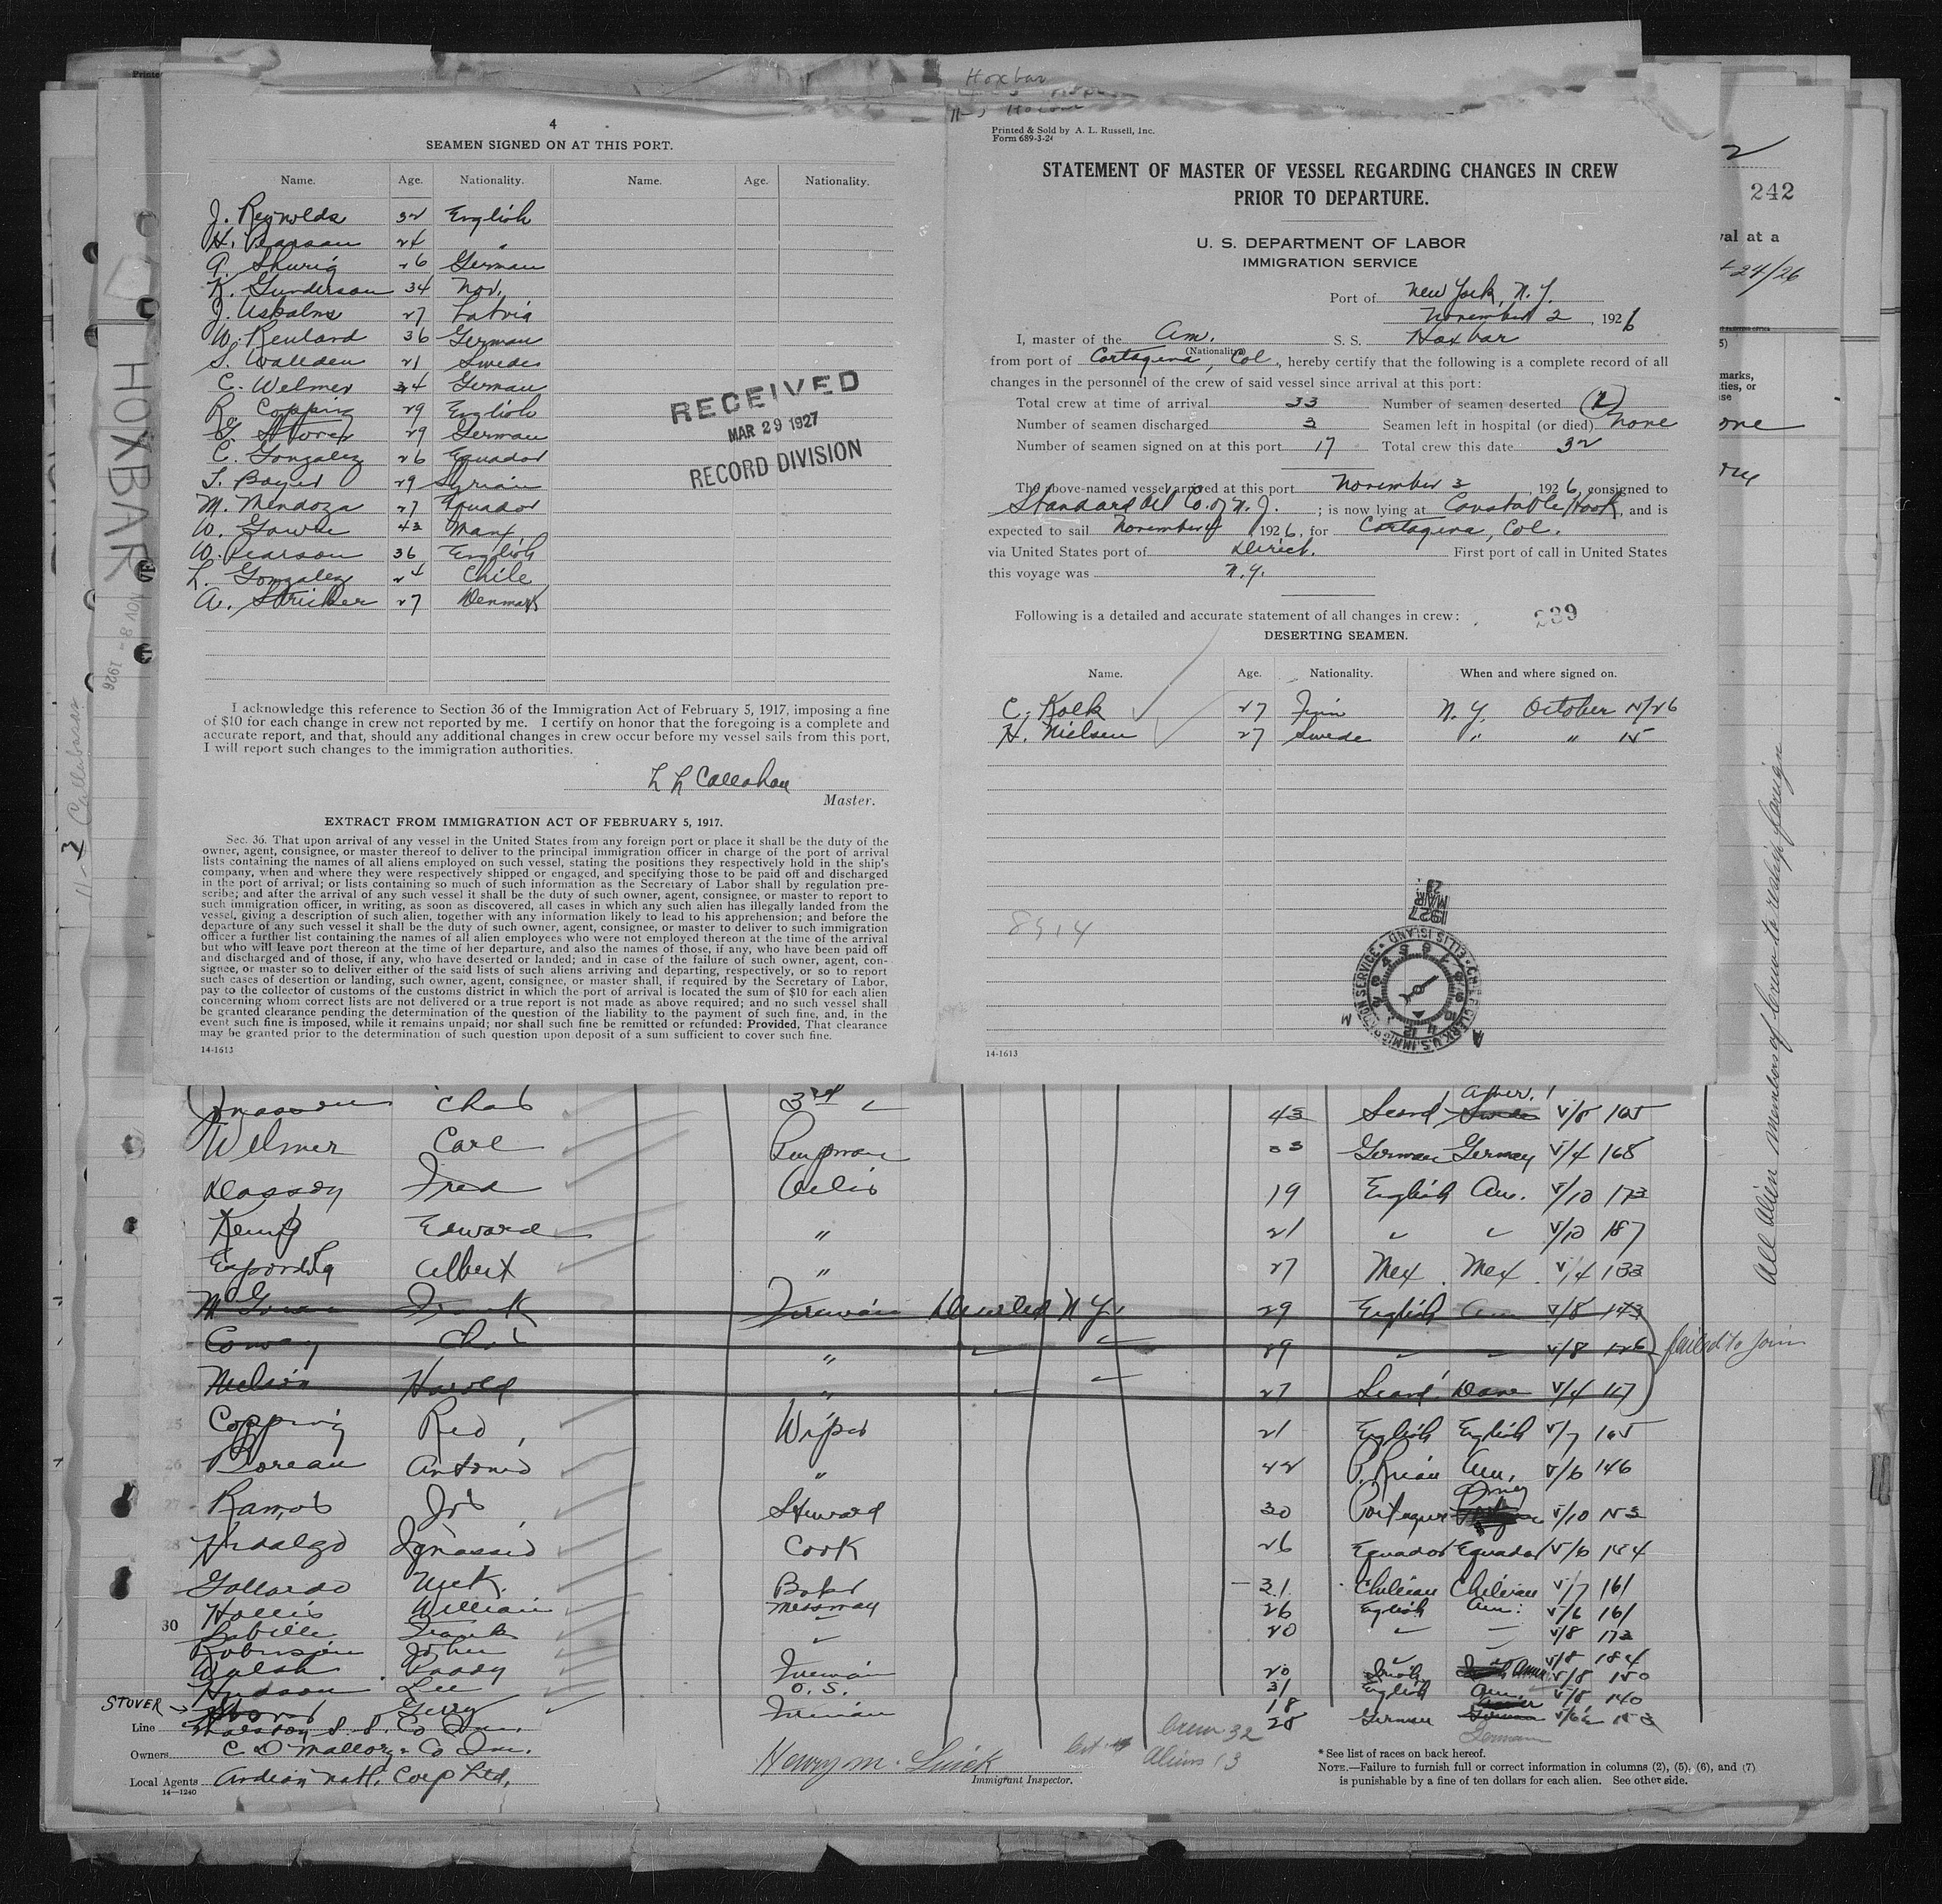 Hoxbar
4
SEAMEN SIGNED ON AT THIS PORT.
Name. Age. Nationality. Name. Age. Nationality.
J. Reynolds 32 English
H. Pearson 24 "
A. Shurig 26 German
K. Gunderson 34 Nor.
J. Uskalns 27 Latvia
W. Renlard 36 German
S. Wallden 21 Swede
C. Welmer 34 German
R. Copping 29 English
G. Stover 29 German
C. Gonzalez 26 Equador
T. 29 Syrian
M. Mendoza 27 Equador
W. Gawne 43 Manx
W. Pearson 36 English
L. Gonzalez 24 Chile
A. Stricker 27 Denmark
RECEIVED
MAR 29 1927
RECORD DIVISION
I acknowledge this reference to Section 36 of the Immigration Act of February 5, 1917, imposing a fine
of $10 for each change in crew not reported by me. I certify on honor that the foregoing is a complete and
accurate report, and that, should any additional changes in crew occur before my vessel sails from this port,
I will report such changes to the immigration authorities.
L L Callahan
Master.
EXTRACT FROM IMMIGRATION ACT OF FEBRUARY 5, 1917.
Sec. 36. That upon arrival of any vessel in the United States from any foreign port or place it shall be the duty of the
owner, agent, consignee, or master thereof to deliver to the principal immigration officer in charge of the port of arrival
lists containing the names of all aliens employed on such vessel, stating the positions they respectively hold in the ship's
company, when and where they were respectively shipped or engaged, and specifying those to be paid off and discharged
in the port of arrival; or lists containing so much of such information as the Secretary of Labor shall by regulation pre-
scribe; and after the arrival of any such vessel it shall be the duty of such owner, agent, consignee, or master to report to
such immigration officer, in writing, as soon as discovered, all cases in which any such alien has illegally landed from the
vessel, giving a description of such alien, together with any information likely to lead to his apprehension; and before the
departure of any such vessel it shall be the duty of such owner, agent, consignee, or master to deliver to such immigration
officer a further list containing the names of all alien employees who were not employed thereon at the time of the arrival
but who will leave port thereon at the time of her departure, and also the names of those, if any, who have been paid off
and discharged and of those, if any, who have deserted or landed; and in case of the failure of such owner, agent, con-
signee, or master so to deliver either of the said lists of such aliens arriving and departing, respectively, or so to report
such cases of desertion or landing, such owner, agent, consignee, or master shall, if required by the Secretary of Labor,
pay to the collector of customs of the customs district in which the port of arrival is located the sum of $10 for each alien
concerning whom correct lists are not delivered or a true report is not made as above required; and no such vessel shall
be granted clearance pending the determination of the question of the liability to the payment of such fine, and, in the
event such fine is imposed, while it remains unpaid; nor shall such fine be remitted or refunded: Provided, That clearance
may be granted prior to the determination of such question upon deposit of a sum sufficient to cover such fine.
14-1613
Printed & Sold by A. L. Russell, Inc.
Form 689-3-24
STATEMENT OF MASTER OF VESSEL REGARDING CHANGES IN CREW
PRIOR TO DEPARTURE.
U. S. DEPARTMENT OF LABOR
IMMIGRATION SERVICE
Port of New York, N. Y.
November 2, 1926
I, master of the Am. S. S. Hoxbar
(Nationality)
from port of Cartagena, Col, hereby certify that the following is a complete record of all
changes in the personnel of the crew of said vessel since arrival at this port:
Total crew at time of arrival 33 Number of seamen deserted (2)
Number of seamen discharged 3 Seamen left in hospital (or died) None
Number of seamen signed on at this port 17 Total crew this date 32
The above-named vessel arrived at this port November 3, 1926, consigned to
Standard Oil Co. of N. J.; is now lying at Constable Hook, and is
expected to sail November 4 1926, for Cartagena, Col.
via United States port of Direct. First port of call in United States
this voyage was N.Y.
Following is a detailed and accurate statement of all changes in crew:
239
DESERTING SEAMEN.
Name. Age. Nationality. When and where signed on.
C. Kolk 27 Finn N.Y. October 2/26
H. Nielsen 27 Swede " " 15
8914
MAR 1927
CHIEF CLERK U.S. IMMIGRATION SERVICE ELLIS ISLAND
14-1613
242
val at a
24/26
marks,
ties, or
se
one
HOXBAR
NOV 8 - 1926
11-3 Callabasas
All Alien members of crew to reship foreign
Jonasson Chas 3rd 43 Scand Amer. Swede 5/8 165
Welmer Carl Pumpman 33 German Germay 5/4 168
Dassoy Fred Oiler 19 English Am. 5/10 173
Kemp Edward " 21 5/10 187
Albert " 27 Mex. Mex. 5/4 133
McGowan Frank Fireman Deserted N.Y. 29 English Am 5/8 143
Conway Chas " 29 5/8 126
failed to join
Nielson Harold " 27 Scand. Dane 5/4 117
25 Copping Red Wiper 21 English English 5/7 165
26 Boreau Antonio " 42 P. Rican Am. 5/6 146
27 Ramos Jos Steward 30 Portugues 5/10 153
28 Hidalgo Ignassio Cook 26 Equador Equador 5/6 154
Gallardo Nick. Baker 31 Chilean Chilean 5/7 161
30 Hollis William Messman 26 English Am. 5/6 161
Labille Frank 20 5/8 172
Robinson John 5/8 184
Walsh Paddy Fireman 20 Irish Amer 5/8 150
Hudson Lee O.S. 31 English Am. 5/8 140
STOVER → Gerry Fireman 18 28 German German
Line Malston S. S. Co Inc.
Owners C D Mallory & Co Inc.
Local Agents Andian Natl. Corp Ltd.
14—1240
Henry M.
Immigrant Inspector.
Crew 32
Aliens 13
* See list of races on back hereof.
NOTE.—Failure to furnish full or correct information in columns (2), (5), (6), and (7)
is punishable by a fine of ten dollars for each alien. See other side.